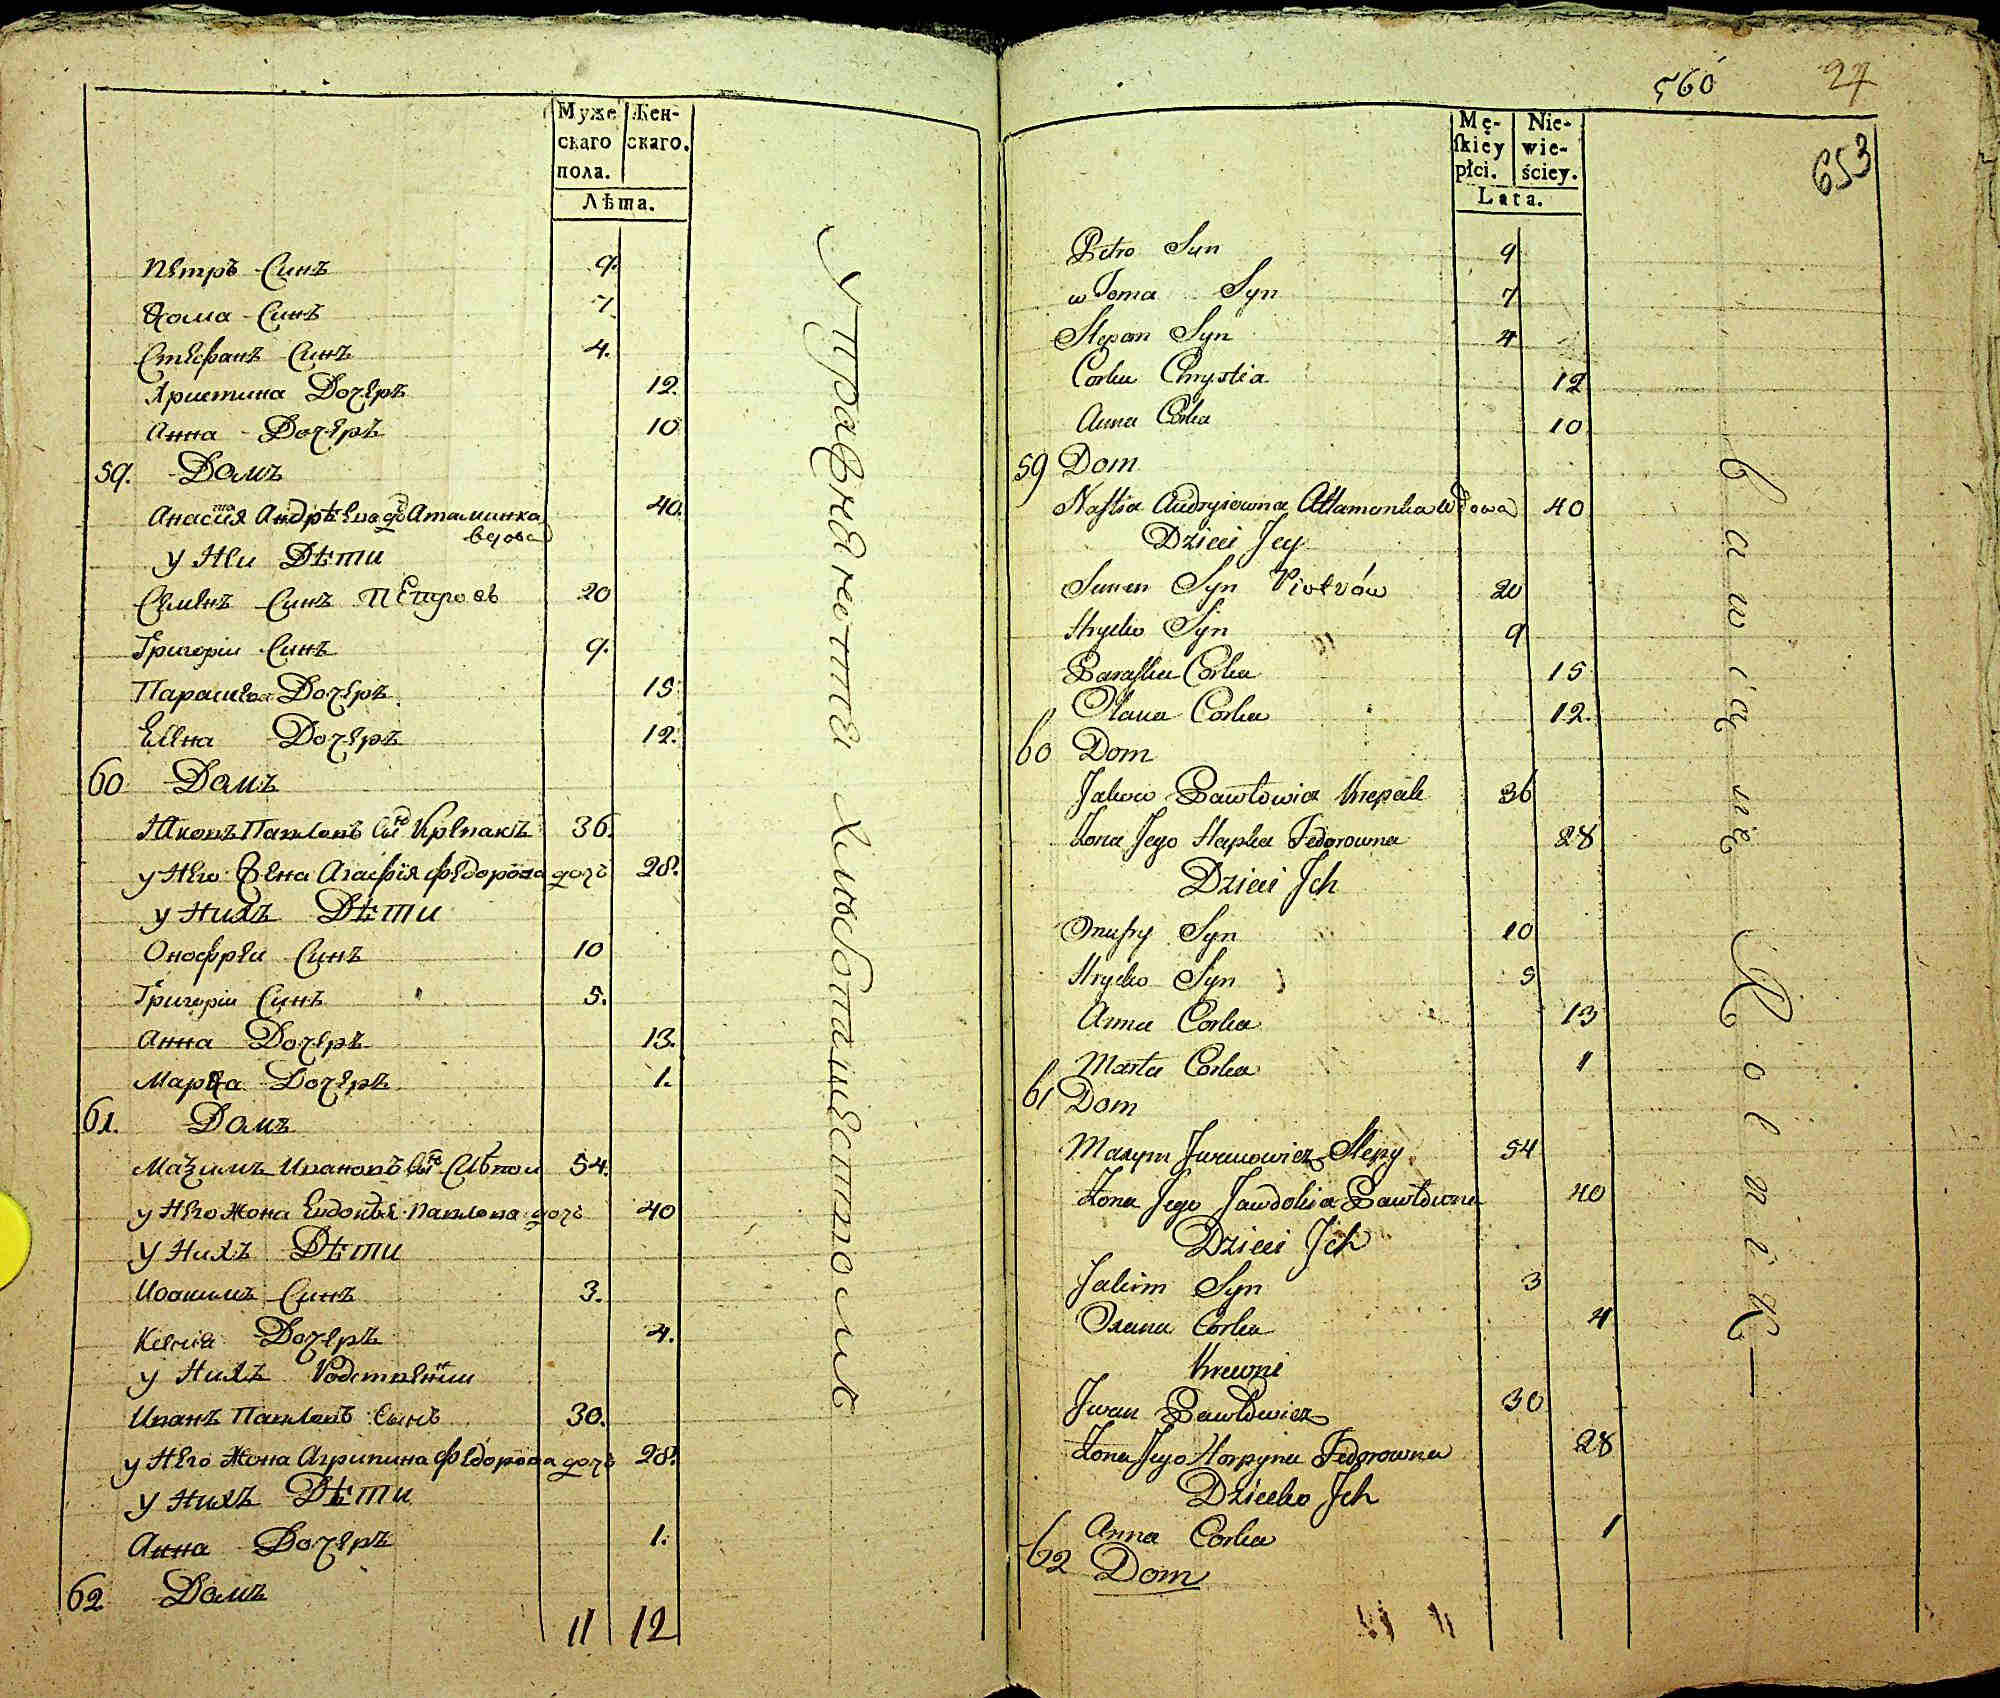 Муже скаго пола. Жен- скаго.
Лѣта.
Петръ Синъ 9.
Ѳома Синъ 7
Стефанъ Синъ 4.
Христина Дочерь 12.
Анна Дочерь 10
59. Домъ
Анастасія Андрѣева до Атаминка вдова 40.
у Неи Дѣти
Семенъ Синъ Петровъ 20
Григоріи Синъ 9.
Парасковa Дочерь 15
Елена Дочерь 12.
60 Домъ
Яковъ Павловъ Сынъ Крепакъ 36.
у Него Жена Агафія Федорова дочь 28.
у Нихъ Дѣти
Онофреи Синъ 10
Григоріи Синъ 5.
Анна Дочерь 13.
Марѳа Дочерь 1.
61. Домъ
Маѯимъ Ивановъ Сынъ Слѣпои 54.
у Него Жона Евдокѣя Павлова дочь 40
у Нихъ Дѣти
Иоакимъ Синъ 3.
Ксенія Дочерь 4.
у Нихъ Родственніи
Иванъ Павловъ Сынъ 30.
у Него Жона Агрипина Федорова дочь 28.
у Нихъ Дѣти
Анна Дочерь 1.
62 Домъ
11 12
Упражняются хлебопашествомъ
560 27
653
Mę- skiey płci. Nie- wie- ściey.
Lata.
Petro Sun 9
Toma Syn 7
Stepan Syn 4
Corka Chrystia 12
Anna Corka 10
59 Dom
Nastia Andryiowna Attamanka Wdowa 40
Dzieci Jey
Semen Syn Piotrów 20
Hrycko Syn 9
Paraska Corka 15
Olana Corka 12.
60 Dom
Jakow Pawłowicz Krepak 36
Żona Jego Hapka Fedorowna 28
Dzieci Jch
Onufry Syn 10
Hrycko Syn 5
Anna Corka 13
Marta Corka 1
61 Dom
Maxym Jwanowicz Slepy 54
Żona Jego Jawdokia Pawłowna 40
Dzieci Jch
Jakim Syn 3
Oxana Corka 4
Krewni
Jwan Pawłowicz 30
Żona Jego Horpyna Fedorowna 28
Dziecko Jch
Anna Corka 1
62 Dom
bawią się Rolnek